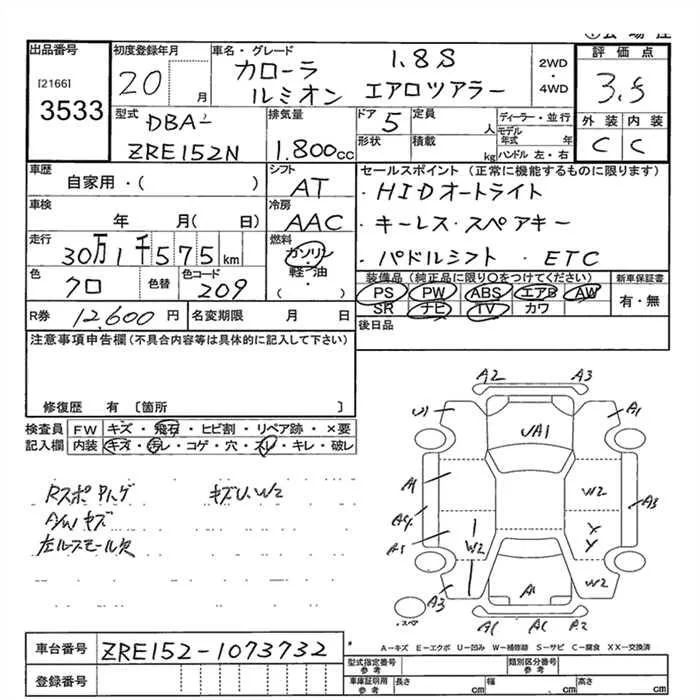 出品番号 初度登録年月 車名・グレード 1.8S 2WD・4WD 評価点
[2166] 20 月 カローラ ルミオン エアロツアラー 3.5
3533
型式 DBA- 排気量 ドア 5 定員 人 ディーラー・並行 外装 内装
ZRE152N 1.800cc 形状 積載 kg モデル年式 年 ハンドル 左・右 C C
車歴 シフト セールスポイント(正常に機能するものに限ります)
自家用・( ) AT ・HIDオートライト
車検 冷房 ・キーレス・スペアキー
年 月( 日) AAC
走行 燃料 ・パドルシフト・ETC
30万1千575km ガソリン 軽油 ( )
色 色替 色コード 装備品(純正品に限り○をつけてください) 新車保証書
クロ 209 PS PW ABS エアB AW 有・無
SR ナビ TV カワ
R券 12,600円 名変期限 月 日 後日品
注意事項申告欄(不具合内容等は具体的に記入して下さい)
修復歴 有 〔箇所 〕
検査員 FW キズ・飛石・ヒビ割・リペア跡・×要
記入欄 内装 キズ・汚レ・コゲ・穴・スレ・キレ・破レ
キズU.W2
A/Wキズ
A2 A3
U1 A1
UA1
A1 W2 A3
W2
A3 W2
スペア
A2
A-キズ E-エクボ U-凹み W-補修跡 S-サビ C-腐食 XX-交換済
車台番号 ZRE152-1073732
型式指定番号 参考 類別区分番号 参考
登録番号 車庫証明用 参考 長さ cm 幅 cm 高さ cm